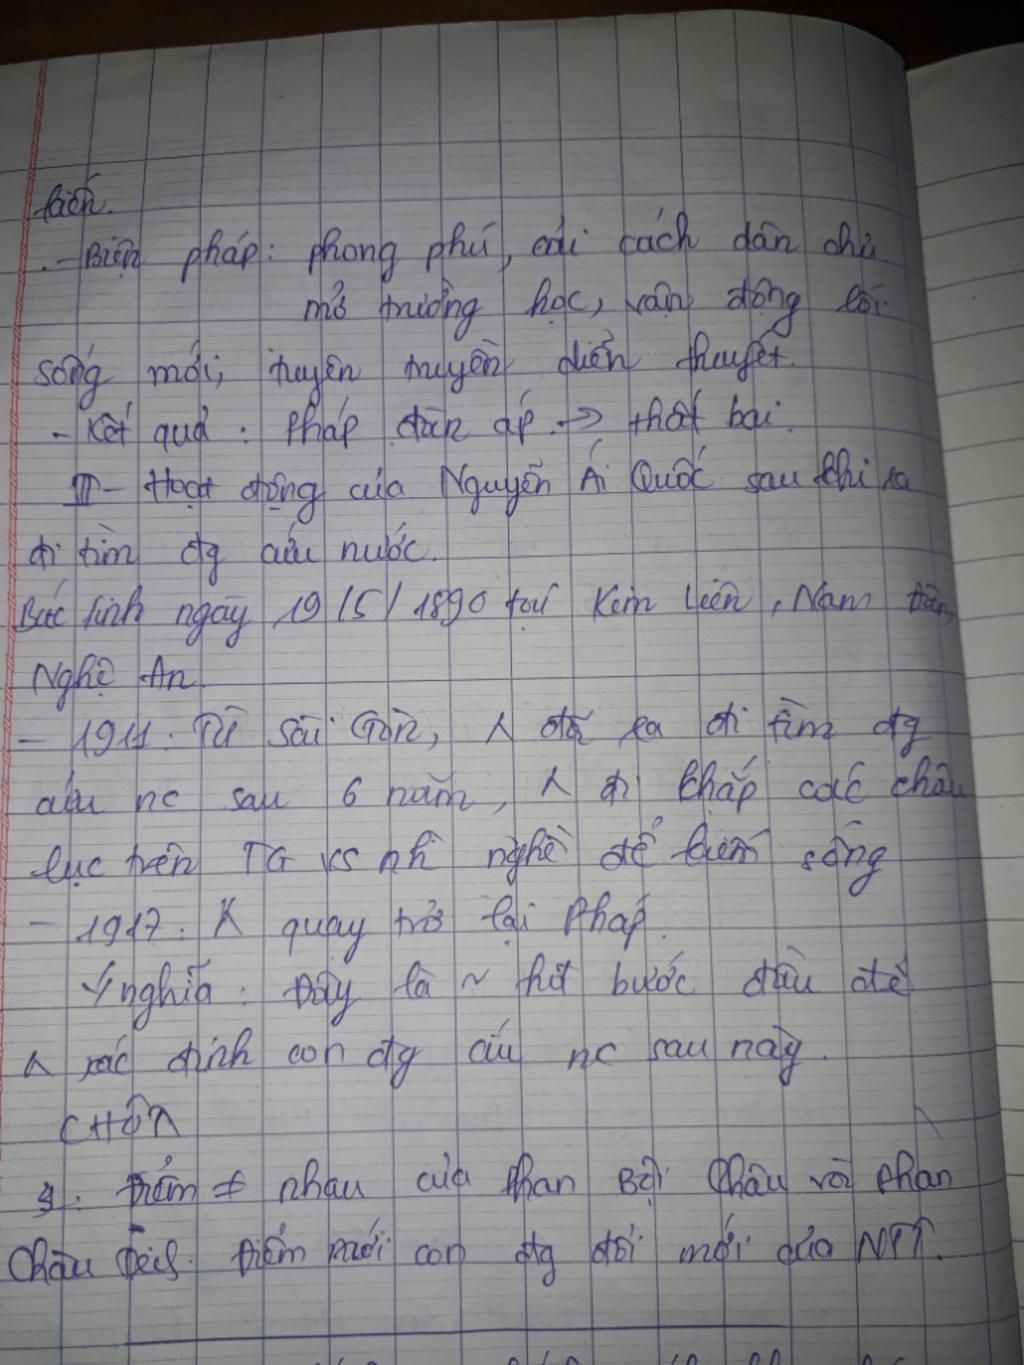 kiến.
- Biện pháp: phong phú, cải cách dân chủ
mở trường học, vận động lối
sống mới, tuyên truyền diễn thuyết.
- Kết quả: Pháp đàn áp → thất bại.
II - Hoạt động của Nguyễn Ái Quốc sau khi ra
đi tìm đg cứu nước.
Bác sinh ngày 19/5/1890 tại Kim Liên, Nam Đàn,
Nghệ An
- 1911: Từ Sài Gòn, đã ra đi tìm đg
cứu nc sau 6 năm, đi khắp các châu
lục trên TG vs nh nghề để kiếm sống
- 1917: quay trở lại Pháp.
Ý nghĩa: Đây là ~ hđ bước đầu để
xác định con đg cứu nc sau này.
Điểm ≠ nhau của Phan Bội Châu và Phan
Châu Điểm mới con đg đổi mới của NTT.